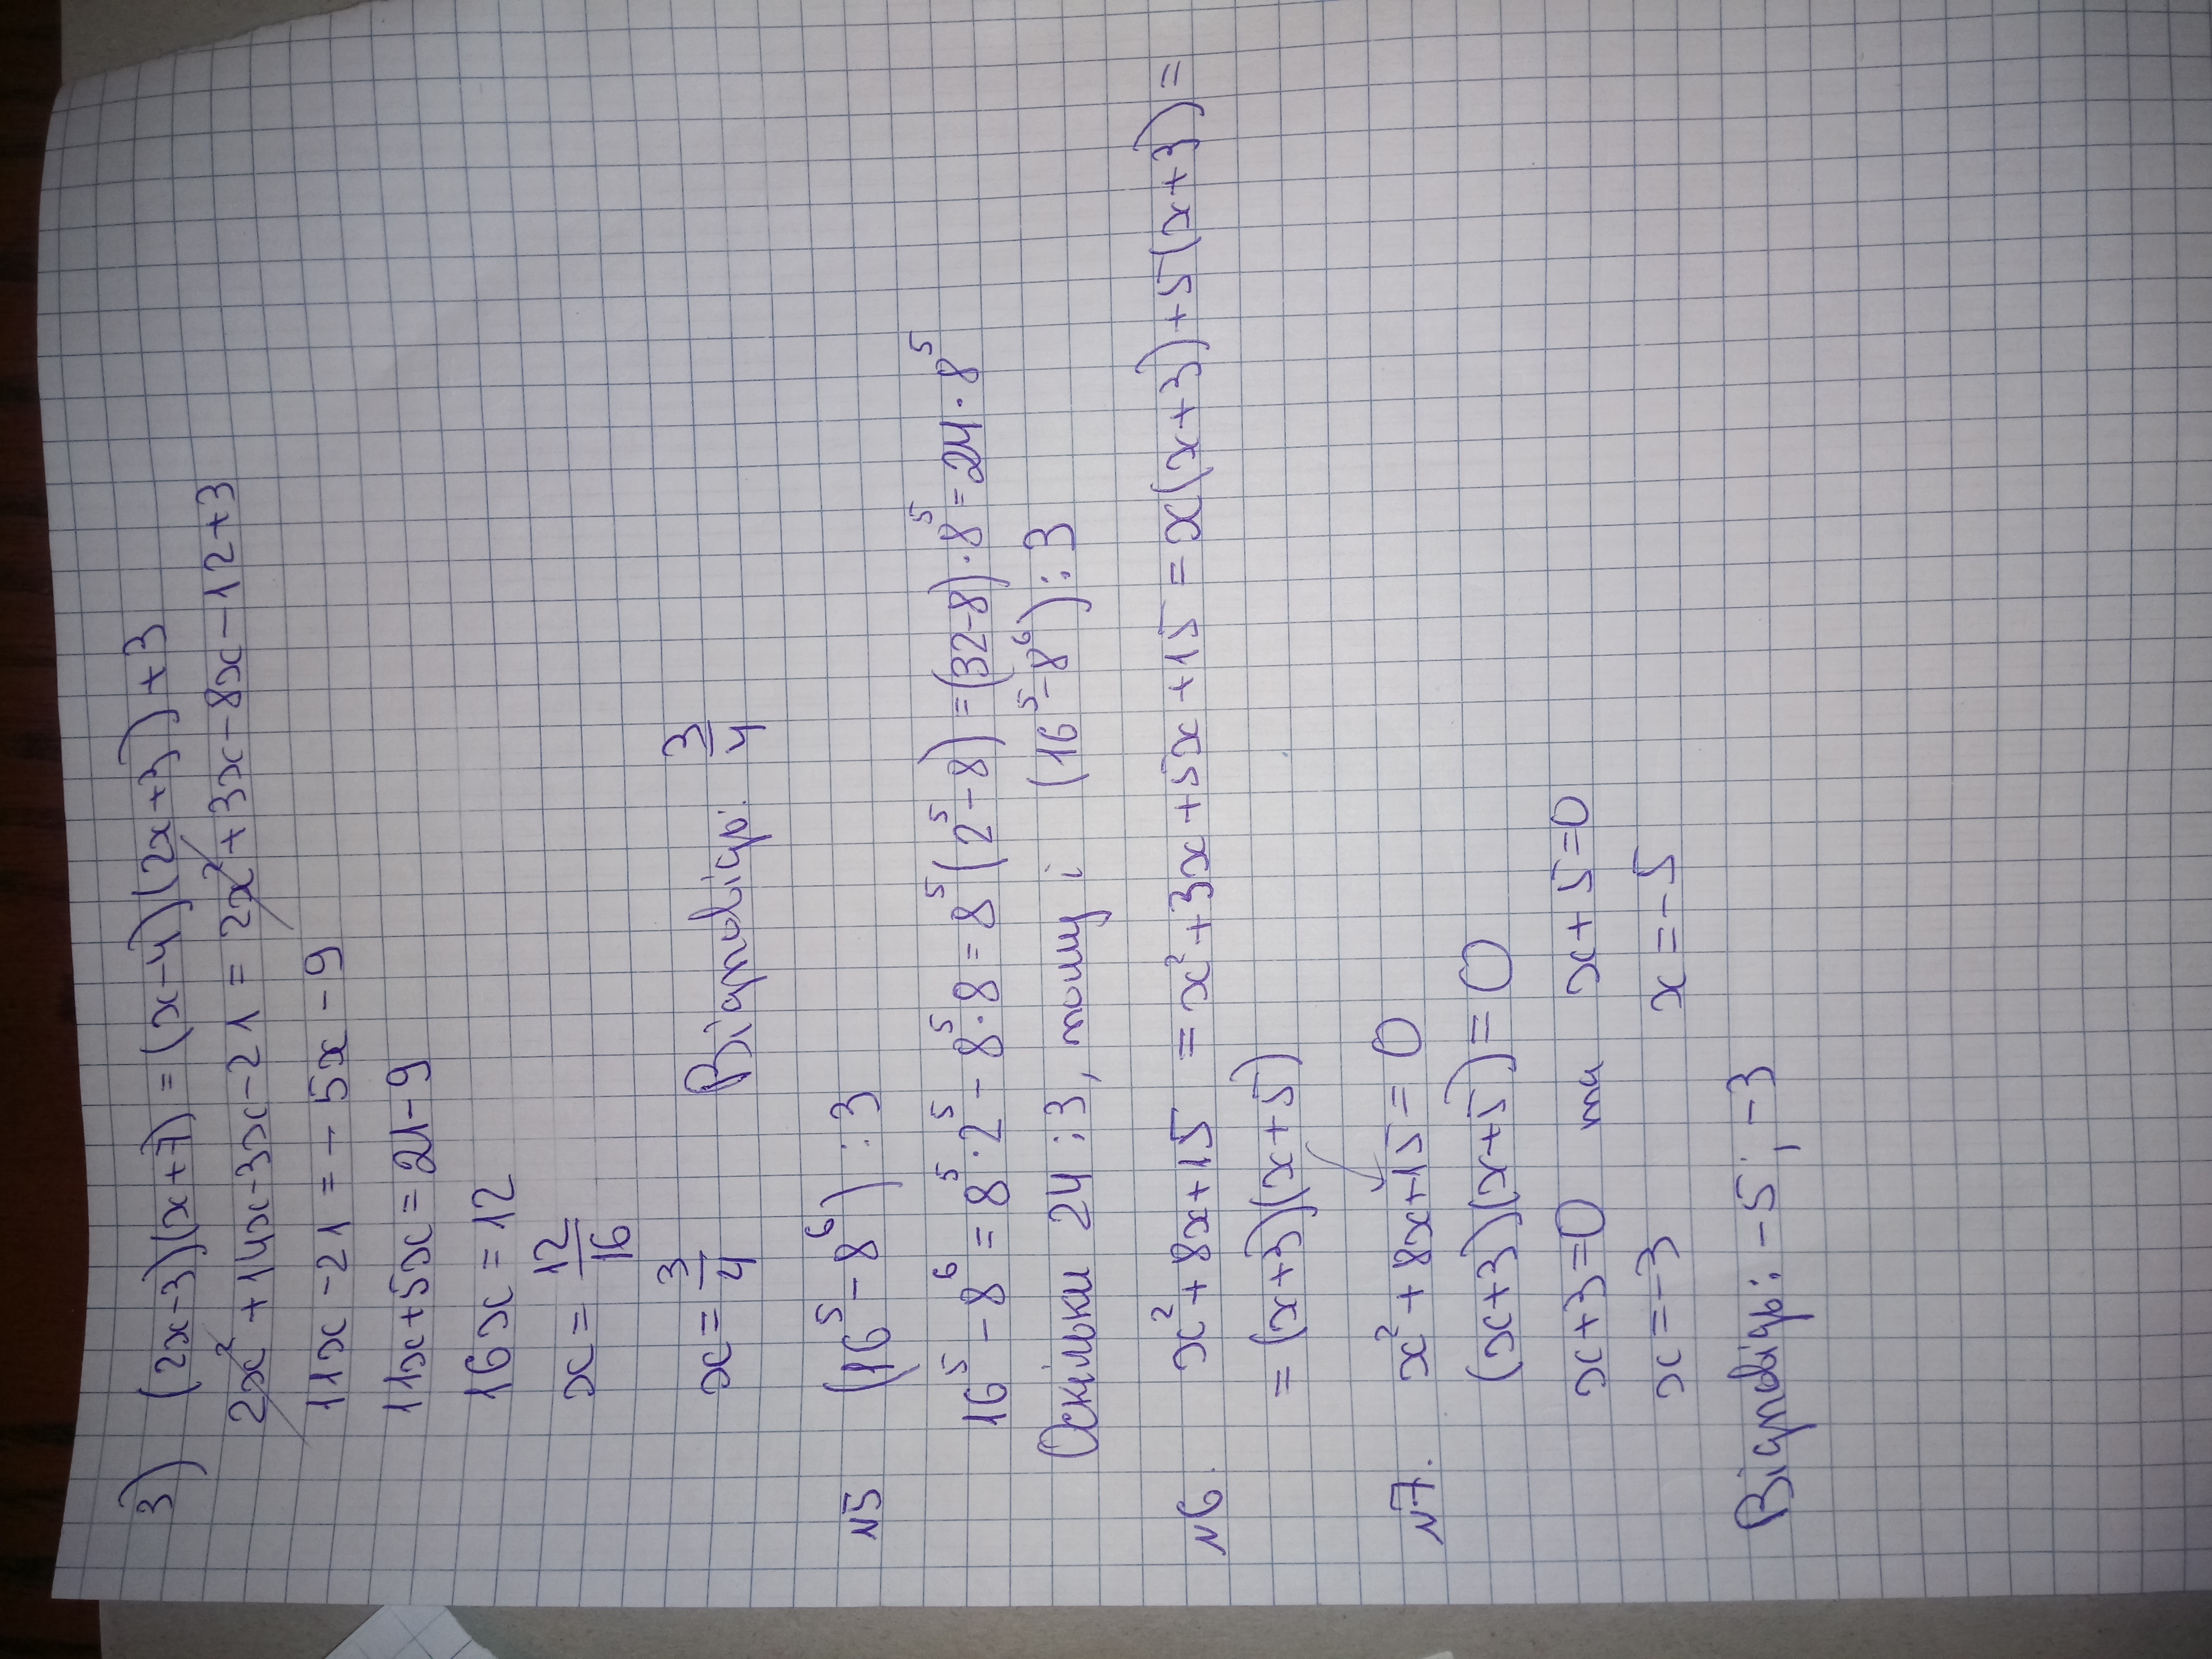 3) (2x-3)(x+7)=(x-4)(2x+3)+3
2x²+14x-3x-21=2x²+3x-8x-12+3
11x-21=-5x-9
11x+5x=21-9
16x=12
x=12/16
x=3/4 Відповідь: 3/4
№5 (16⁵-8⁶):3
16⁵-8⁶=8⁵·2⁵-8⁵·8=8⁵(2⁵-8)=(32-8)·8⁵=24·8⁵
Оскільки 24:3, тому і (16⁵-8⁶):3
№6. x²+8x+15 =x²+3x+5x+15=x(x+3)+5(x+3)=
=(x+3)(x+5)
№7. x²+8x+15=0
(x+3)(x+5)=0
x+3=0 та x+5=0
x=-3 x=-5
Відповідь: -5; -3